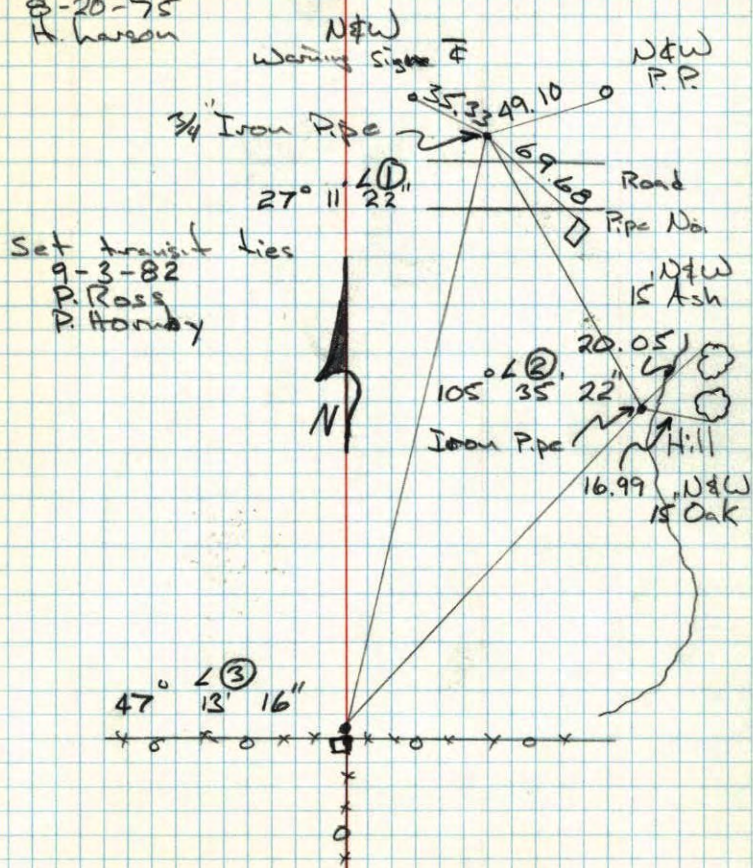 8-20-75
H. Larson
N&W
Warning Sign ₵
N&W
P.P.
35.33
49.10
3/4" Iron Pipe
69.68
Road
∠①
27° 11' 22"
Pipe No.
Set transit ties
9-3-82
P. Ross
P. Hornby
N&W
15" Ash
20.05
∠②
105° 35' 22"
N
Iron Pipe
Hill
16.99
N&W
15" Oak
∠③
47° 13' 16"